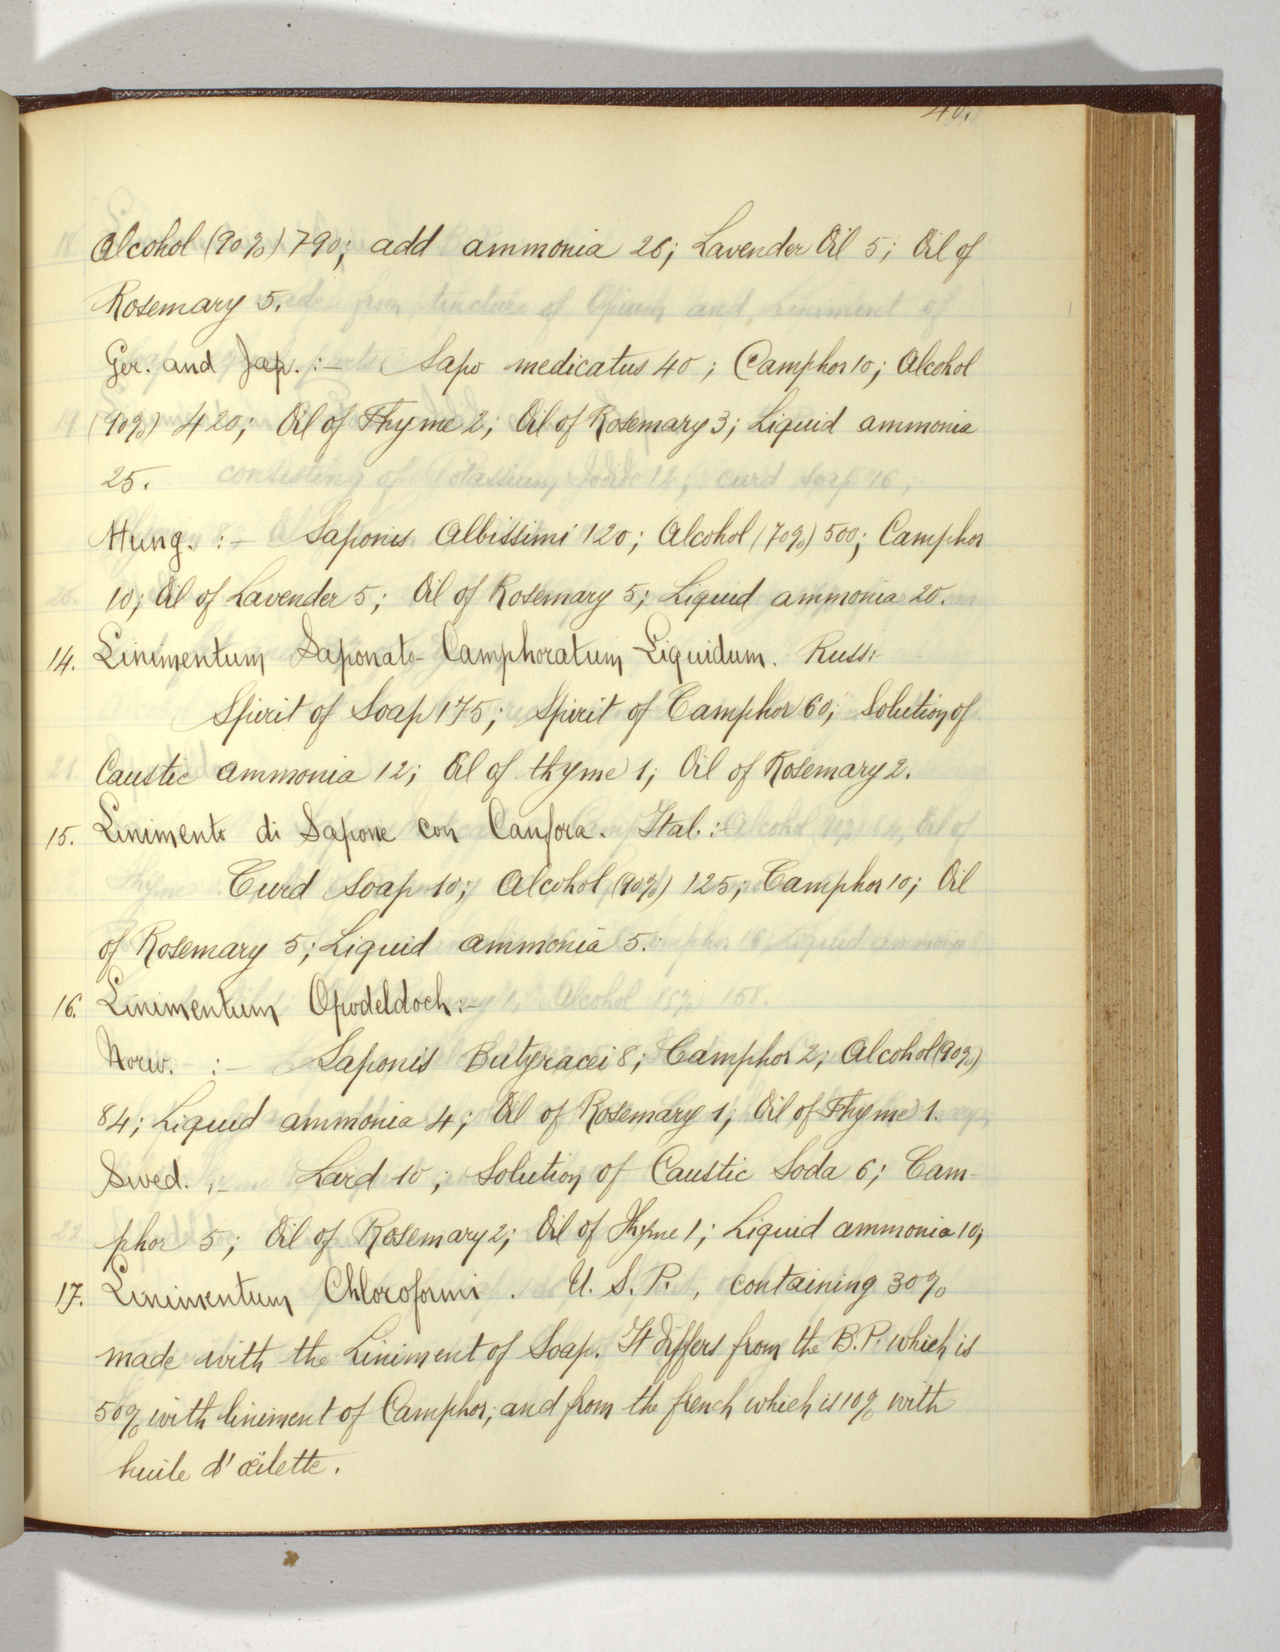 40.
Alcohol (90%) 790; add ammonia 26; Lavender Oil 5; Oil of
Rosemary 5.
Ger. and Jap. :– Sapo medicatus 40; Camphor 10; Alcohol
(90%) 420; Oil of Thyme 2; Oil of Rosemary 3; Liquid ammonia
25.
Hung. :– Saponis Albissimi 120; Alcohol (70%) 500; Camphor
10; Oil of Lavender 5; Oil of Rosemary 5; Liquid ammonia 20.
14. Linimentum Saponato-Camphoratum Liquidum. Russ:
Spirit of Soap 175; Spirit of Camphor 60; Solution of
Caustic ammonia 12; Oil of thyme 1; Oil of Rosemary 2.
15. Linimento di Sapone con Canfora. Ital. :
Curd Soap 10; Alcohol (90%) 125; Camphor 10; Oil
of Rosemary 5; Liquid ammonia 5.
16. Linimentum Opodeldoch:–
Norw. :– Saponis Butyracei 8; Camphor 2; Alcohol (90%)
84; Liquid ammonia 4; Oil of Rosemary 1; Oil of Thyme 1.
Swed. :– Lard 10; Solution of Caustic Soda 6; Cam-
phor 5; Oil of Rosemary 2; Oil of Thyme 1; Liquid ammonia 10;
17. Linimentum Chloroformi. U. S. P., containing 30%
made with the Liniment of Soap. It differs from the B.P. which is
50% with liniment of Camphor, and from the french which is 10% with
huile d'œilette.